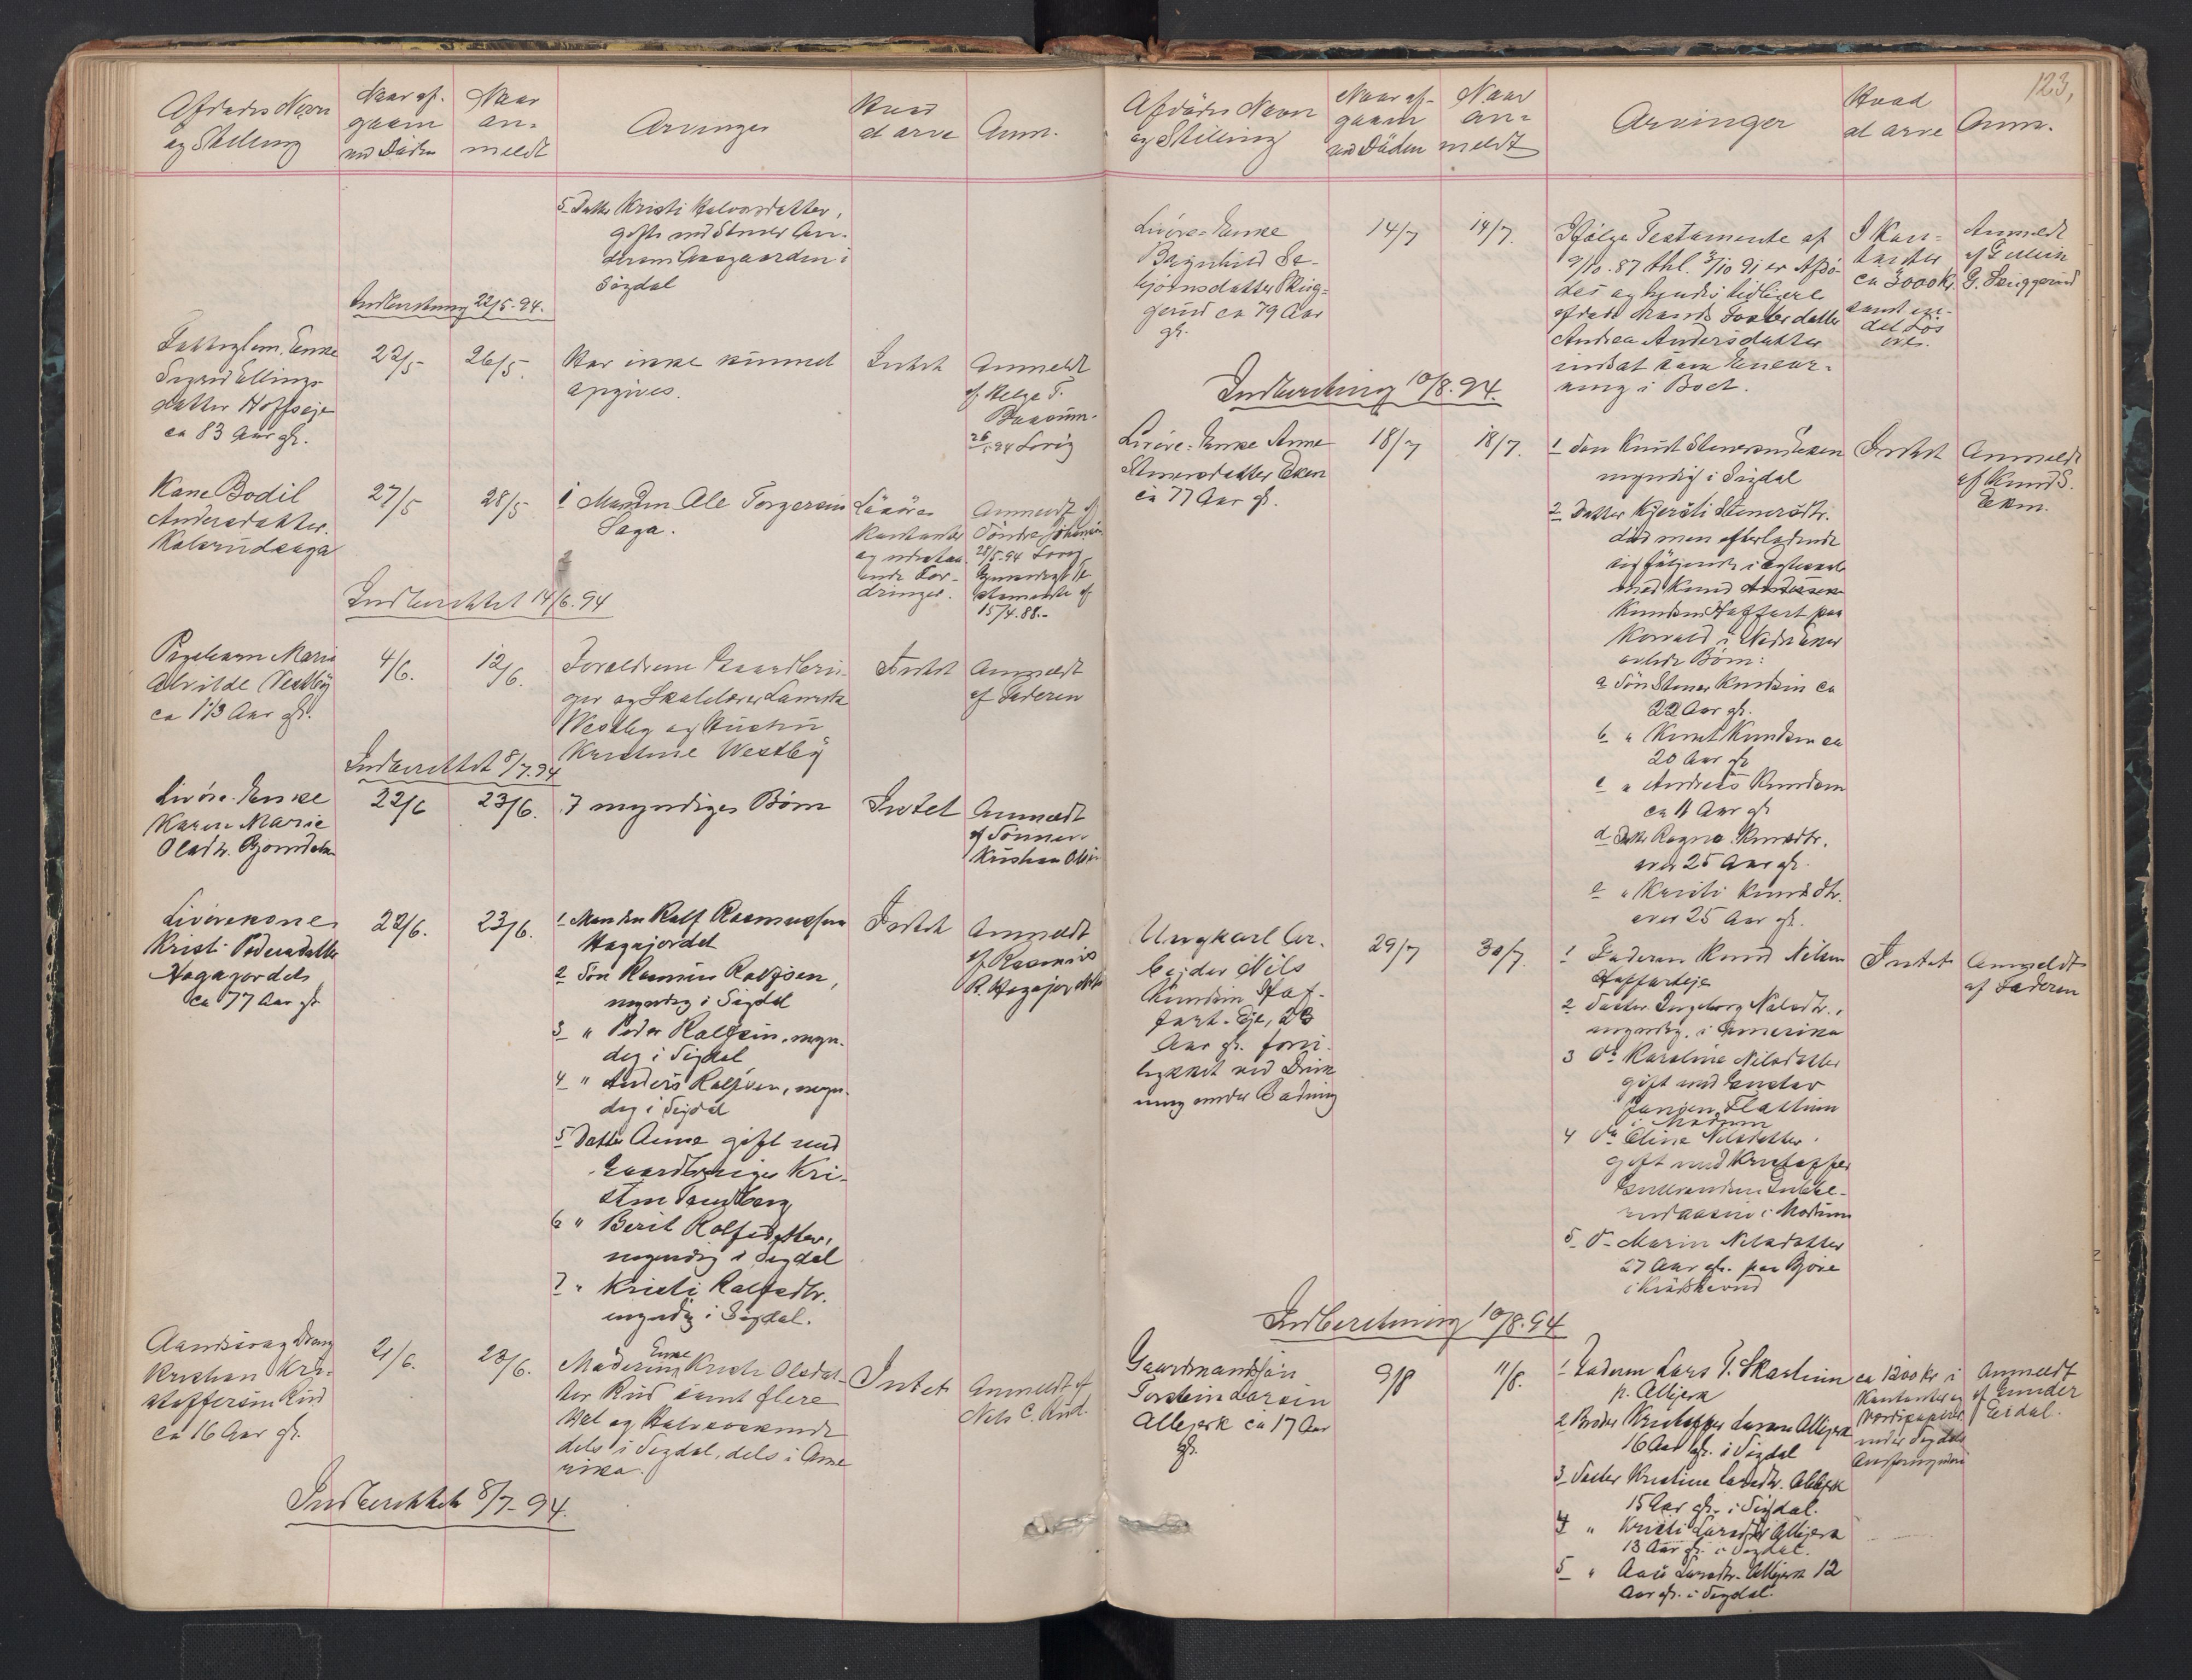 Afdødes Navn
og Stilling
Naar af-
gaaen
ved Døden
Naar
an-
meldt
Arvinger
Hvad
at arve
Anm.
5 Datter Kristi Halvorsdatter,
gift med Stener An-
dersen Aasgaarden i
Sigdal
Indberetning 22/5-94.
Enke
Sigrid Ellings-
datter Hoffseje
ca 83 Aar gl.
22/5
26/5.
Har ikke kunnet
opgives.
Intet
Anmeldt
af Helge T.
26
Kone Bodil
Andersdatter
Kolsrudsaga
27/5
28/5
1 Manden Ole Torgersen
Saga.
Løsøre
Kontanter
og udestaa-
ende For-
dringer.
Anmeldt af
Tøndre Johansen
28/5.94
Testamente af
15/4.88.-
Indberettet 14/6.94
Pigebarn Marie
Alvilde Vestby
ca 1 1/3 Aar gl.
4/6.
12/6.
Forældrene Gaardbru-
ger og Skolelærer
Westby og Hustru
Kristine Westby
Intet
Anmeldt
af Faderen
Indberettet 8/7.94
Livøre-Enke
Karen Marie
Olsdtr.
22/6
23/6.
7 myndiges Børn
Intet
Anmeldt
af Sønnen
Kristian Olsen
Livørekone
Kristi Pedersdatter
Hagajordet
ca 77 Aar gl.
22/6.
23/6.
1 Manden Rolf Rasmussen
Hagajordet
2 Søn Rasmus Rolfsen,
myndig i Sigdal
3 " Peder Rolfsen, myn-
dig i Sigdal
4 " Anders Rolfsen, myn-
dig i Sigdal
5 Datter Anne gift med
Gaardbruger Kri-
sten Tandberg
6 " Berit Rolfsdatter,
myndig i Sigdal
7 " Kristi Rolfsdtr.
myndig i Sigdal.
Intet
Anmeldt
af Rasmus
R. Hagajordet
Aandssvag Dreng
Kristian Kri-
stoffersen Rud
ca 16 Aar gl.
21/6.
23/6.
Moderen Enke Kristi Olsdat-
ter Rud samt flere
Hel og Halvsøskende
dels i Sigdal, dels i Ame
rika.
Intet
Anmeldt af
Nels C. Rud.
Indberettet 8/7-94.
123,
Afdødes Navn
og Stilling
Naar af-
gaaen
ved Døden
Naar
an-
meldt
Arvinger
Hvad
at arve
Anm.
Livøre-Enke
Ragnhild Se-
bjørnsdatter Skrig-
gerud ca 79 Aar
gl.
14/7
14/7.
Ifølge Testamente af
9/10.87 thl. 3/10 91 er Afdø-
des og hendes tidligere
afdøde Mands Fosterdatter
Andrea Andersdatter
indsat som Enear-
ving i Boet.
I Kon-
tanter
ca 3000 Kr.
samt en-
del Løs
øre.
Anmeldt
af Gullein
G. Skriggerud
Indberetning 10/8.94.
Livøre-Enke Anne
Stenersdatter Eken
ca 77 Aar gl.
18/7
18/7.
1 Søn Knut Stenersen Eken
myndig i Sigdal
2 Datter Kjersti Stenersdtr.
død men efterladende
sig følgende i Egteskab
med Knud Andersen
Knudsen Haffart paa
Korvald i Nedre Eker
avlede Børn:
a Søn Stener Knudsen ca
22 Aar gl.
b " Knut Knudsen ca
20 Aar gl.
c " Andreas Knudsen
ca 11 Aar gl.
d Datter Ragna Knudsdtr.
over 25 Aar gl.
e " Kristi Knudsdtr.
over 25 Aar gl.
Intet
Anmeldt
af Knud S.
Eken.
Ungkarl Ar-
beider Nils
Knudsen Haf-
fart-Eje, 23
Aar gl. foru-
lykket ved Druk
ning under Badning
29/7
30/7.
1 Faderen Knud Nilsen
Haffarteje
2 Søster Ingeborg Nilsdtr.,
myndig, i Amerika
3 do Karoline Nilsdatter
gift med Gustav
Jensen, Flattum
i Modum
4 do Eline Nilsdatter,
gift med Kristoffer
i Modum
5 do Marie Nilsdatter
27 Aar gl. paa Gjøve
i Krødsherred
Intet
Anmeldt
af Faderen
Indberetning 10/8.94
Gaardmandssøn
Torstein Larsen
Albjerk ca 17 Aar
gl.
9/8
11/8.
1 Faderen Lars T. Skartum
p. Albjerk
2 Broder Kristoffer Larsen Albjerk
16 Aar gl. i Sigdal
3 Søster Kristine Larsdtr. Albjerk
15 Aar gl. i Sigdal.
4 " Kristi Larsdtr Albjerk
13 Aar gl. i Sigdal.
5 " Aase Larsdtr. Albjerk 12
Aar gl. i Sigdal.
ca 1200 Kr i
Kontanter og
Værdipapirer
under Sigdals
Anmeldt
af Gunder
Eidal.